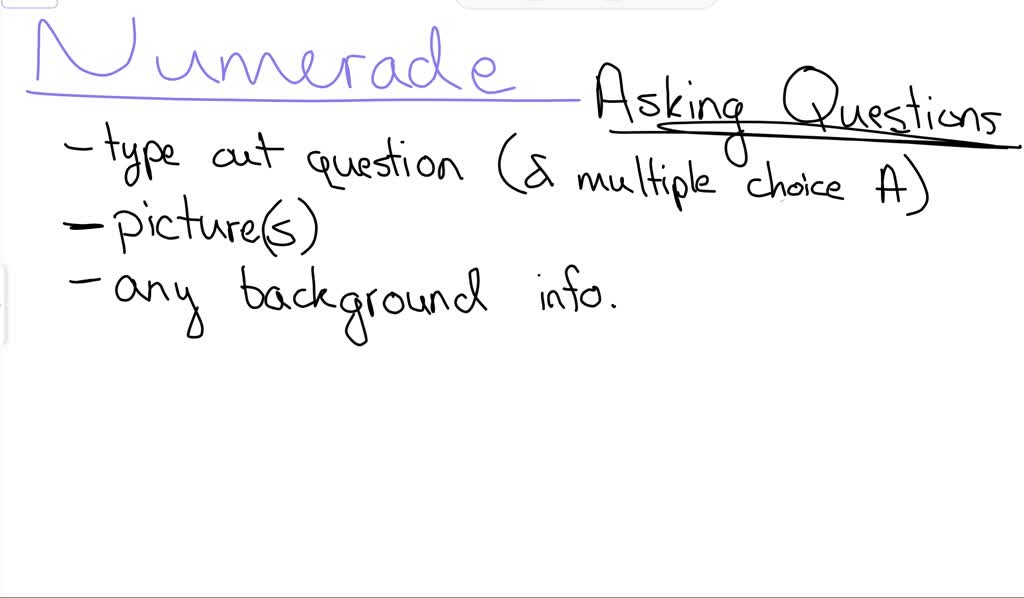 Numerade
Asking Questions
- type out question (& multiple choice A)
- picture(s)
- any background info.